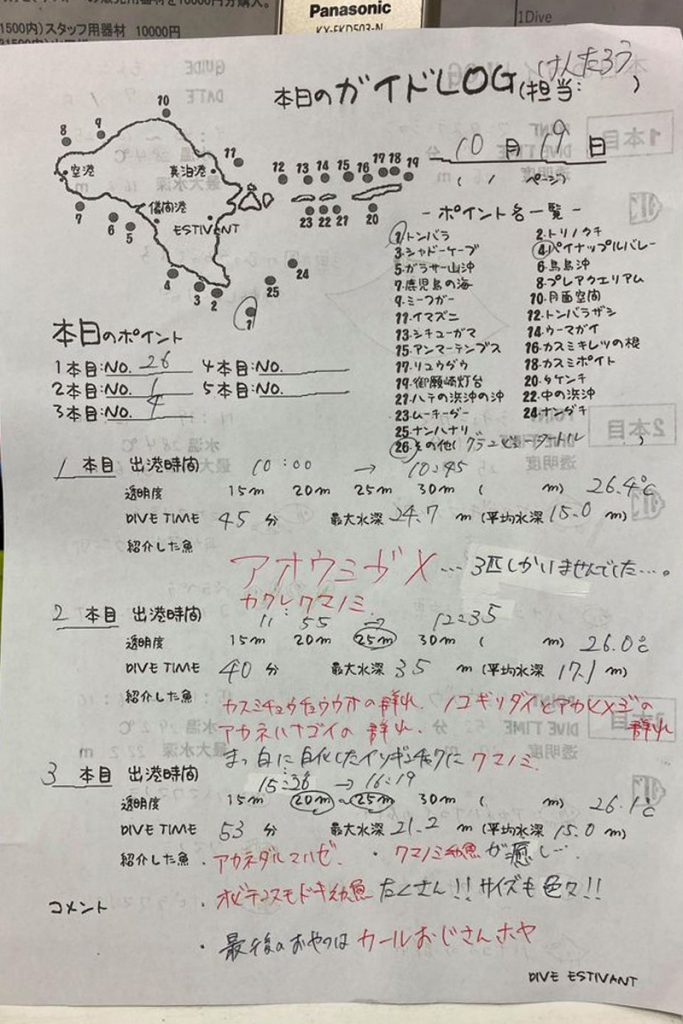 の販売用器材を10000円分購入。
1500内)スタッフ用器材 10000円
Panasonic
KX-FKD503-N
1Dive
本日のガイドLOG(担当: けんたろう)
10月19日
( 1 ページ)
10
8
9
空港
真泊港
11
儀間港
ESTIVANT
7
6
5
4
3
2
1
24
25
12 13 14 15 16 17 18 19
23 22 21 20
-ポイント名一覧-
1・トンバラ 2・トリノクチ
3・シャドーケーブ 4・パイナップルバレー
5・ガラサー山沖 6・鳥島沖
7・鹿児島の海 8・プレアクエリアム
9・ミーフガー 10・月面空間
11・イマズニ 12・トンバラザシ
13・シチューガマ 14・ウーマガイ
15・アンマーテンプス 16・カスミキレツの根
17・リュウグウ 18・カスミポイト
19・御願崎灯台 20・タケンチ
21・ハテの浜沖の沖 22・中の浜沖
23・ムーチーダー 24・ナンダチ
25・ナンハナリ
26・その他(グランビュータートル)
本日のポイント
1本目:NO. 26 4本目:NO.
2本目:NO. 1 5本目:NO.
3本目:NO. 4
1 本目 出港時間 10:00 → 10:45
透明度 15m 20m 25m 30m ( m) 26.4℃
DIVE TIME 45 分 最大水深 24.7 m (平均水深 15.0 m)
紹介した魚
アオウミガメ…3匹しかいませんでした…。
カクレクマノミ
2 本目 出港時間 11:55 → 12:35
透明度 15m 20m 25m 30m ( m) 26.0℃
DIVE TIME 40 分 最大水深 35 m (平均水深 17.1 m)
紹介した魚 カスミチョウチョウウオの群れ. ノコギリダイとアカヒメジの群れ
アカネハナゴイの群れ.
まっ白に白化したイソギンチャクにクマノミ.
3 本目 出港時間 15:36 → 16:19
透明度 15m 20m~25m 30m ( m) 26.1℃
DIVE TIME 53 分 最大水深 21.2 m (平均水深 15.0 m)
紹介した魚 ・アカネダルマハゼ. ・クマノミ幼魚が癒し….
・オビテンスモドキ幼魚 たくさん!!サイズも色々!!
コメント
・最後のおやつは カールおじさんホヤ
DIVE ESTIVANT